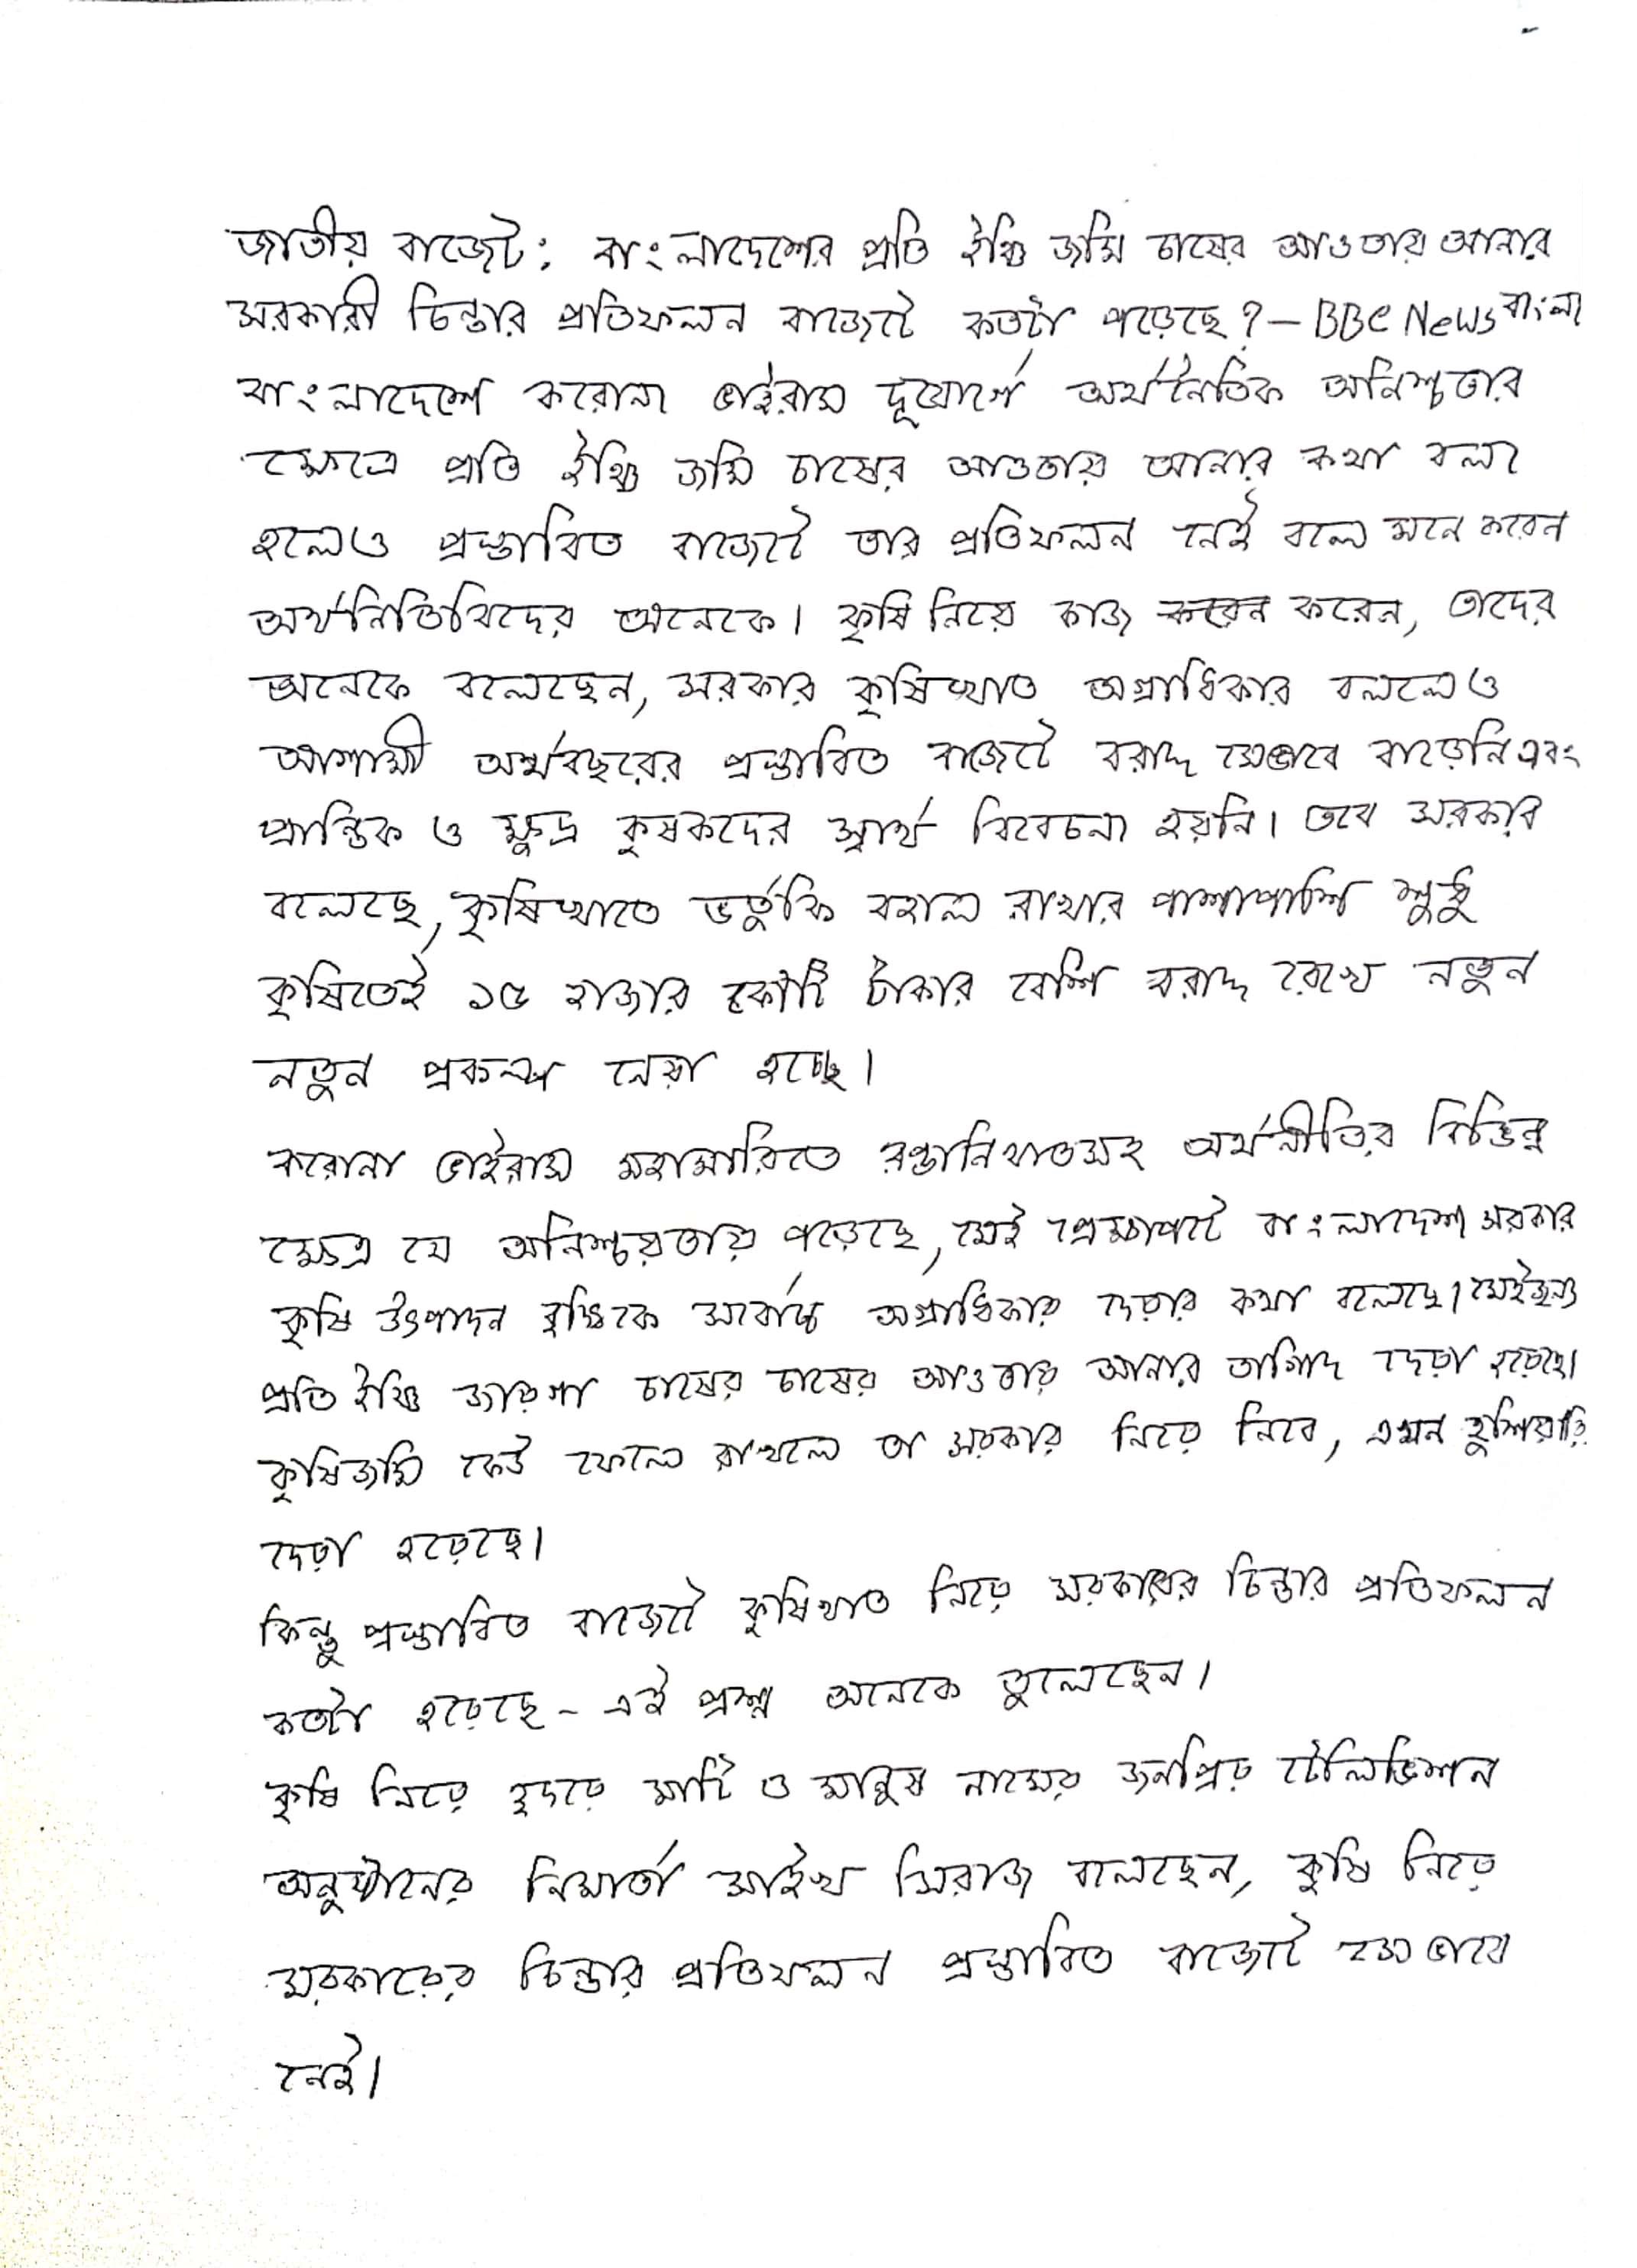 জাতীয় বাজেট: বাংলাদেশের প্রতি ইঞ্চি জমি চাষের আওতায় আনার
সরকারী চিন্তার প্রতিফলন বাজেটে কতটা পড়েছে? – BBC News বাংলা
বাংলাদেশে করোনা ভাইরাস দূর্যোগে অর্থনৈতিক অনিশ্চতার
ক্ষেত্রে প্রতি ইঞ্চি জমি চাষের আওতায় আনার কথা বলা
হলেও প্রস্তাবিত বাজেটে তার প্রতিফলন নেই বলে মনে করেন
অর্থনিতিবিদের অনেকে। কৃষি নিয়ে কাজ করেন করেন, তাদের
অনেকে বলেছেন, সরকার কৃষিখাত অগ্রাধিকার বললেও
আগামী অর্থবছরের প্রস্তাবিত বাজেটে বরাদ্দ সেভাবে বাড়েনি এবং
প্রান্তিক ও ক্ষুদ্র কৃষকদের স্বার্থ বিবেচনা হয়নি। তবে সরকার
বলেছে, কৃষিখাতে ভর্তুকি বহাল রাখার পাশাপাশি শুধু
কৃষিতেই ১৫ হাজার কোটি টাকার বেশি বরাদ্দ রেখে নতুন
নতুন প্রকল্প নেয়া হচ্ছে।
করোনা ভাইরাস মহামারিতে রপ্তানিখাতসহ অর্থনীতির বিভিন্ন
ক্ষেত্র যে অনিশ্চয়তায় পড়েছে, সেই প্রেক্ষাপটে বাংলাদেশ সরকার
কৃষি উৎপাদন বৃদ্ধিকে সর্বোচ্চ অগ্রাধিকার দেয়ার কথা বলেছে। সেইজন্য
প্রতি ইঞ্চি জায়গা চাষের চাষের আওতায় আনার তাগিদ দেয়া হয়েছে।
কৃষিজমি কেউ ফেলে রাখলে তা সরকার নিয়ে নিবে, এমন হুশিয়ারি
দেয়া হয়েছে।
কিন্তু প্রস্তাবিত বাজেটে কৃষিখাত নিয়ে সরকারের চিন্তার প্রতিফলন
কতটা হয়েছে – এই প্রশ্ন অনেকে তুলেছেন।
কৃষি নিয়ে হৃদয়ে মাটি ও মানুষ নামের জনপ্রিয় টেলিভিশন
অনুষ্ঠানের নির্মাতা সাইখ সিরাজ বলেছেন, কৃষি নিয়ে
সরকারের চিন্তার প্রতিফলন প্রস্তাবিত বাজেটে সেভাবে
নেই।